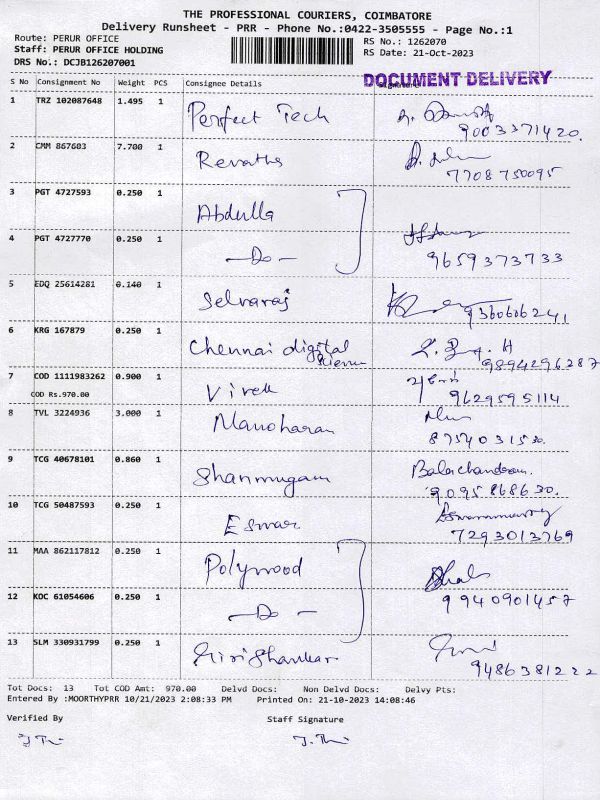 THE PROFESSIONAL COURIERS, COIMBATORE
Delivery Runsheet - PRR - Phone No.:0422-3505555 - Page No.:1
Route: PERUR OFFICE
RS No.: 1262070
Staff: PERUR OFFICE HOLDING
RS Date: 21-Oct-2023
DRS No.: DCJB126207001
S No Consignment No Weight PCS Consignee Details
DOCUMENT DELIVERY
1 TRZ 102087648 1.495 1 Perfect Tech
9003371420.
2 CMM 867603 7.700 1 Revathy
7708750095
3 PGT 4727593 0.250 1 Abdulla
4 PGT 4727770 0.250 1 -Do-
9659373733
5 EDQ 25614281 0.140 1 Selvaraj
9360606241
6 KRG 167879 0.250 1 Chennai digital
9894296287
7 COD 1111983262 0.900 1 Vivek
COD Rs.970.00
9629595114
8 TVL 3224936 3.000 1 Manoharan
8754031530.
9 TCG 40678101 0.860 1 Shanmugam Balachandran.
9095868630.
10 TCG 50487593 0.250 1 Eswar
7293013769
11 MAA 862117812 0.250 1 Polywood
12 KOC 61054606 0.250 1 -Do-
9940901457
13 SLM 330931799 0.250 1 Girishankar
9486381222
Tot Docs: 13 Tot COD Amt: 970.00 Delvd Docs: Non Delvd Docs: Delvy Pts:
Entered By :MOORTHYPRR 10/21/2023 2:08:33 PM Printed On: 21-10-2023 14:08:46
Verified By Staff Signature